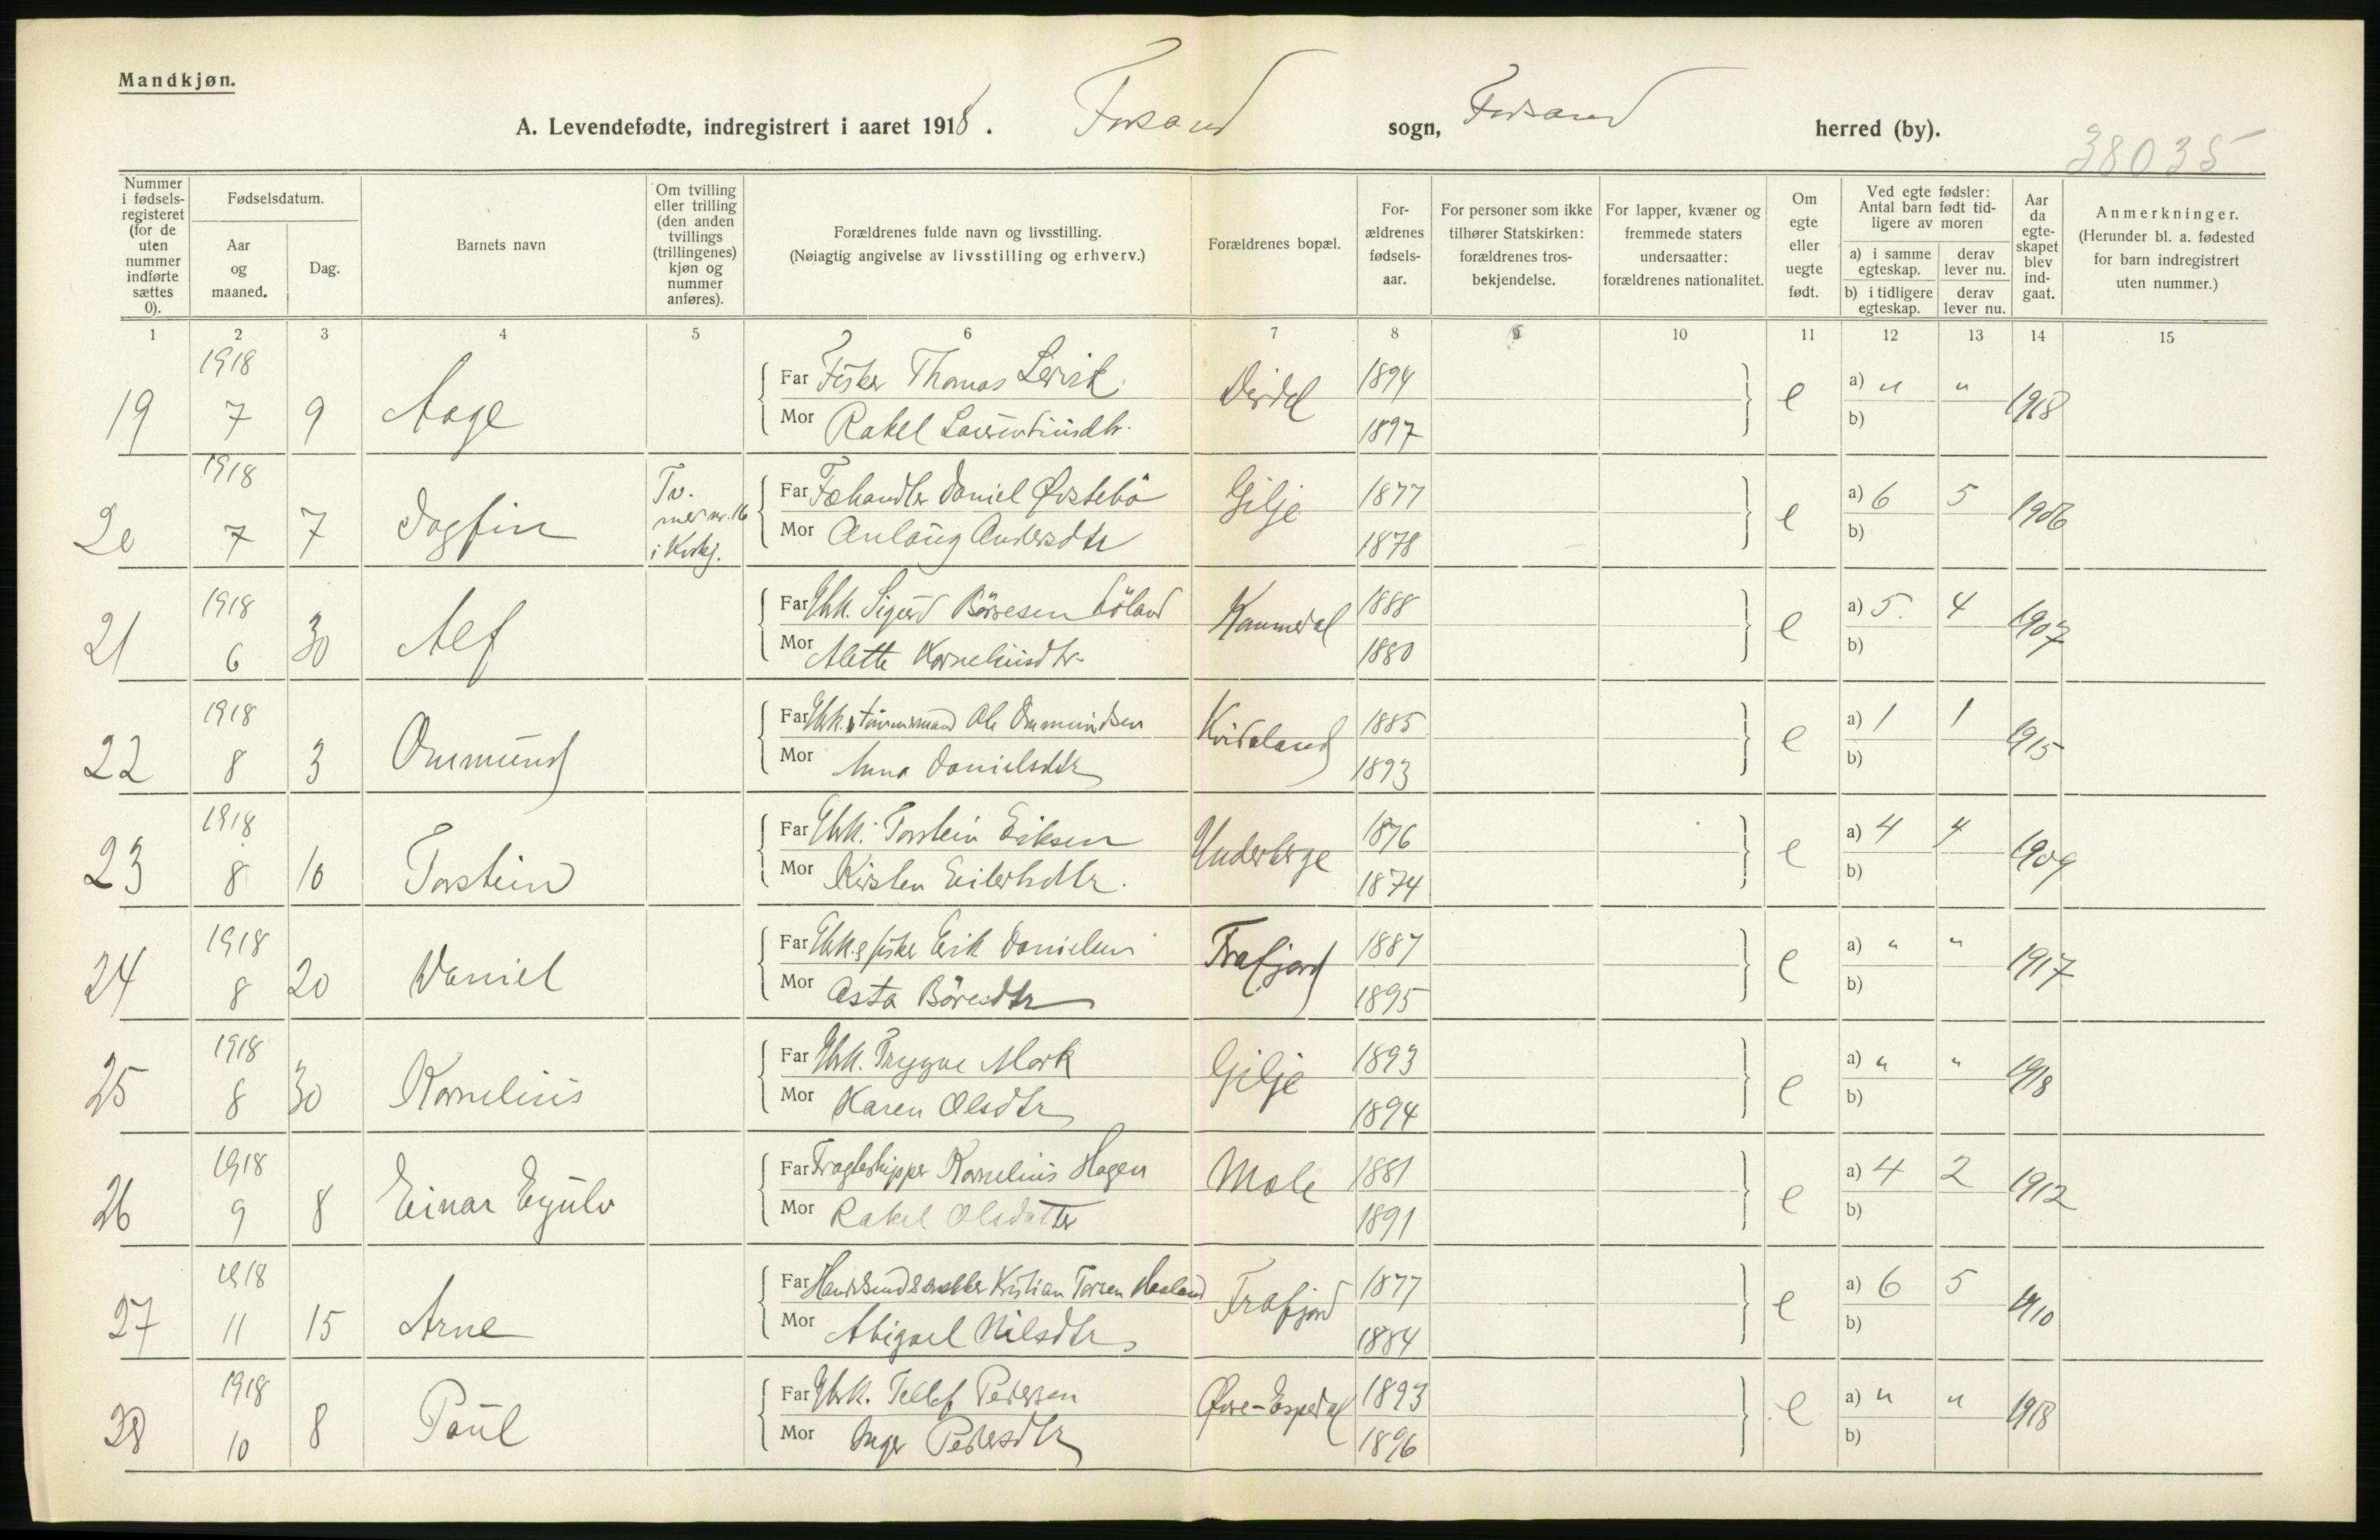 Mandkjøn.
A. Levendefødte, indregistrert i aaret 1918. Forsand sogn, Forsand herred (by).
38035
Nummer i fødsels-registeret (for de uten nummer indførte sættes 0).
Fødselsdatum.
Aar og maaned.
Dag.
Barnets navn
Om tvilling eller trilling (den anden tvillings (trillingenes) kjøn og nummer anføres).
Forældrenes fulde navn og livsstilling.
(Nøiagtig angivelse av livsstilling og erhverv.)
Forældrenes bopæl.
For-ældrenes fødsels-aar.
For personer som ikke tilhører Statskirken: forældrenes tros-bekjendelse.
For lapper, kvæner og fremmede staters undersaatter: forældrenes nationalitet.
Om egte eller uegte født.
Ved egte fødsler: Antal barn født tid-ligere av moren
a) i samme egteskap. derav lever nu.
b) i tidligere egteskap. derav lever nu.
Aar da egte-skapet blev ind-gaat.
Anmerkninger.
(Herunder bl. a. fødested for barn indregistrert uten nummer.)
1 2 3 4 5 6 7 8 9 10 11 12 13 14 15
1918 Far Fisker Thomas 1894 a) " "
19 7 9 Aage Dirdal e 1918
Mor Rakel 1897 b)
1918 Tv. Far Fæhandler Daniel Østebö 1877 a) 6 5
20 7 7 Dagfin nr. 16 Gilje e 1906
i Kvkj. Mor Anlaug Andersdtr 1878 b)
1918 Far Gbk. Sigurd Böresen Löland 1888 a) 5. 4
21 6 30 Alf Kommedal e 1907
Mor Alette Korneliusdtr. 1880 b)
1918 Far Gbk. Ole Ommundsen 1885 a) 1 1
22 8 3 Ommund Kvidaland e 1915
Mor Anna Danielsdtr 1893 b)
1918 Far Gbk. Torstein Eriksen 1876 a) 4 4
23 8 10 Torstein Underberge e 1909
Mor Kirsten Eilertsdtr. 1874 b)
1918 Far Gbk. & fisker Erik Danielsen 1887 a) " "
24 8 20 Daniel Frafjord e 1917
Mor Asta Böresdtr 1895 b)
1918 Far Gbk. Trygve Mork 1893 a) " "
25 8 30 Kornelius Gilje e 1918
Mor Karen Olsdtr 1894 b)
1918 Far Fragteskipper Kornelius Hagen 1881 a) 4 2
26 9 8 Einar Eyulv Mole e 1912
Mor Rakel Olsdatter 1891 b)
1918 Far Kristian Torsen Haaland 1877 a) 6 5
27 11 15 Arne Frafjord e 1910
Mor Abigael Nilsdtr 1884 b)
1918 Far Gbk. Tellef Pedersen 1893 a) " "
28 10 8 Paul Øvre-Espedal e 1918
Mor Inger Pedersdtr 1896 b)